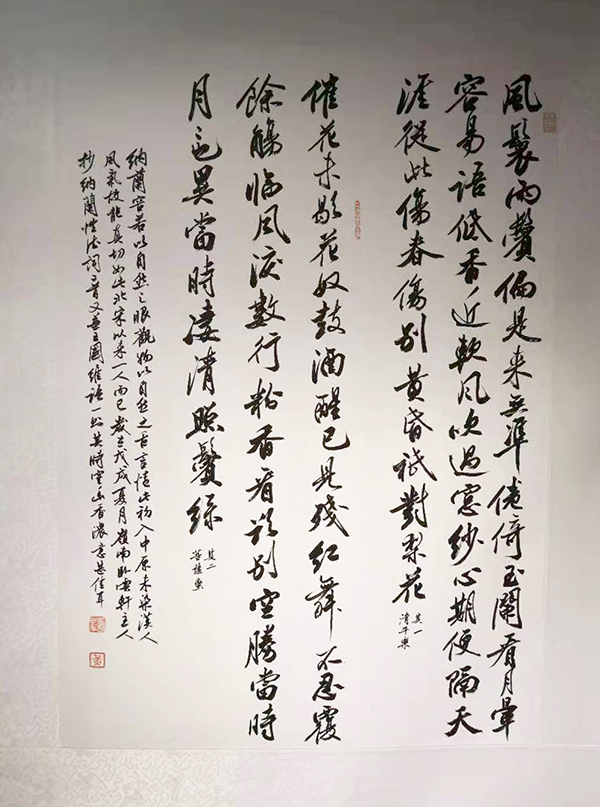 風鬟雨鬢偏是來無準倦倚玉闌看月暈
容易語低香近軟風吹過窓紗心期便隔天
涯從此傷春傷別黃昏祇對梨花
其一
清平樂
催花未歇花奴鼓酒醒已見殘紅舞不忍覆
餘觴臨風淚數行粉香看欲別空勝當時
月也異當時淒清照鬢絲
其二
菩薩蠻
納蘭容若以自然之眼觀物以自然之舌言情此初入中原未染漢人
風氣故能真切如此北宋以來一人而已歲在戊戌夏月嶺南臥雲軒主人
抄納蘭性德詞二首又並王國維語一則其時室幽香濃意甚佳耳